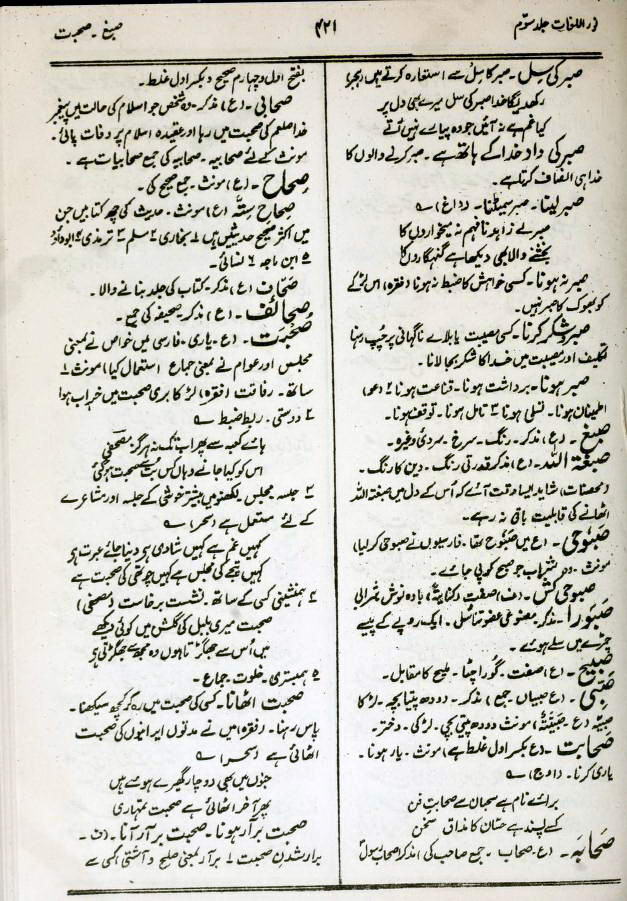 نور اللغات جلد سوم
۴۲۱
صبغ ۔ صحبت
صبر کی سل ۔ صبر کا سل سے استعارہ کرتے ہیں (بحر)
رکھ دیگا خدا صبر کی سل میرے بھی دل پر
کیا غم ہے نہ آئیں جو وہ پیارے نہیں آتے
صبر کی داد خدا کے ہاتھ ہے ۔ صبر کرنے والوں کا
خدا ہی انصاف کرتا ہے ۔
صبر لینا ۔ صبر سمیٹنا ۔ (داغ) ؎
صبر لے زاہد نافہم نہ میخواروں کا
بخشنے والا بھی دیکھا ہے گنہگاروں کا
صبر نہ ہونا ۔ کسی خواہش کا ضبط نہ ہونا (فقرہ) اس لڑکے
کو بھوک کا صبر نہیں ۔
صبر و شکر کرنا ۔ کسی مصیبت یا بلائے ناگہانی پر چپ رہنا
تکلیف اور مصیبت میں خدا کا شکر بجا لانا ۔
صبر ہونا ۔ برداشت ہونا ۔ قناعت ہونا ۲ (عو)
اطمینان ہونا ۔ تسلی ہونا ۳ تامل ہونا ۔ توقف ہونا ۔
صبغ ۔ (ع) مذکر ۔ رنگ ۔ سرخ ۔ سردی وغیرہ ۔
صبغۃ اللہ ۔ (ع) مذکر قدرتی رنگ ۔ دین کا رنگ ۔
(محصنات) شاید ایسا وقت آئے کہ اس کے دل میں صبغۃ اللہ
اٹھانے کی قابلیت باقی نہ رہے ۔
صبوحی ۔ (ع میں صبوح تھا ۔ فارسیوں نے صبوحی کر لیا)
مونث ۔ وہ شراب جو صبح کو پی جائے ۔
صبوحی کش ۔ (ف) صفت (کنایۃً) بادہ نوش شرابی
صبورا ۔ مذکر ۔ مصنوعی عضو تناسل ۔ ایک روپے کے پیسے
چمڑے میں سلے ہوئے ۔
صبیح ۔ (ع) صفت ۔ گورا چٹا ۔ ملیح کا مقابل ۔
صبی ۔ (ع صبیاں ۔ جمع) مذکر ۔ دودھ پیتا بچہ ۔ لڑکا
صبیّہ (ع ۔ صبیّۃ) مونث دودھ پیتی بچی ۔ لڑکی ۔ دختر ۔
صحابت ۔ (ع بکسر اول غلط ہے) مونث ۔ یار ہونا ۔
یاری کرنا ۔ (اوج) ؎
برائے نام ہے سحبان سے صحابت فن
کسے پسند ہے حسّان کا مذاق سخن
صحابہ ۔ (ع ۔ صحاب ۔ جمع صاحب کی) مذکر اصحاب رسول
بفتح اول و چہارم صحیح و بکسر اول غلط ۔
صحابی ۔ (ع) مذکر ۔ وہ شخص جو اسلام کی حالت میں پیغمبر
خدا صلعم کی صحبت میں رہا اور عقیدہ اسلام پر وفات پائی ۔
مونث کے لئے صحابیہ ۔ صحابیہ کی جمع صحابیات ہے ۔
صحاح ۔ (ع) مونث ۔ جمع صحیح کی ۔
صحاح ستّہ (ع) مونث ۔ حدیث کی چھ کتابیں جن
میں اکثر صحیح حدیثیں ہیں ۱ بخاری ۲ مسلم ۳ ترمذی ۴ ابوداؤد
۵ ابن ماجہ ۶ نسائی ۔
صحّاف (ع) مذکر ۔ کتاب کی جلد بنانے والا ۔
صحائف (ع) مذکر ۔ صحیفہ کی جمع ۔
صُحبَت ۔ (ع) ۔ یاری ۔ فارسی میں خواص نے بمعنی
مجلس اور عوام نے بمعنی جماع استعمال کیا) مونث ۱
ساتھ ۔ رفاقت (فقرہ) لڑکا بری صحبت میں خراب ہوا
۲ دوستی ۔ ربط ضبط ؎
ہائے کعبہ سے پھرا اب تک نہ ہرگز مصحفی
اس کو کیا جانے وہاں کس بت سے صحبت ہو گئی
۳ جلسہ مجلس ۔ لکھنؤ میں بیشتر خوشی کے جلسہ اور مشاعرے
کے لئے مستعمل ہے (سحر) ؎
کہیں غم ہے کہیں شادی ہے دنیا جائے عبرت ہے
کہیں تیجے کی مجلس ہے کہیں چوتھی کی صحبت ہے
۴ ہمنشینی کسی کے ساتھ ۔ نشست برخاست (مصحفی)
صحبت میری بلبل کی گلشن میں کوئی دیکھے
میں اُس سے جھگڑتا ہوں وہ مجھ سے جھگڑتی ہے
۵ ہمبستری ۔ خلوت ۔ جماع ۔
صحبت اٹھانا ۔ کسی کی صحبت میں رہ کر کچھ سیکھنا ۔
پاس رہنا ۔ (فقرہ) میں نے مدتوں ایرانیوں کی صحبت
اٹھائی ہے (سحر) ؎
جنوں میں بھی دو چار گھیرے ہوئے ہیں
پھر آخر اٹھائی ہے صحبت تمہاری
صحبت برآر ہونا ۔ صحبت برآر آنا ۔ (ف ۔
برار شدن صحبت ۱ برآر بمعنی صلح و آشتی اگمی سے